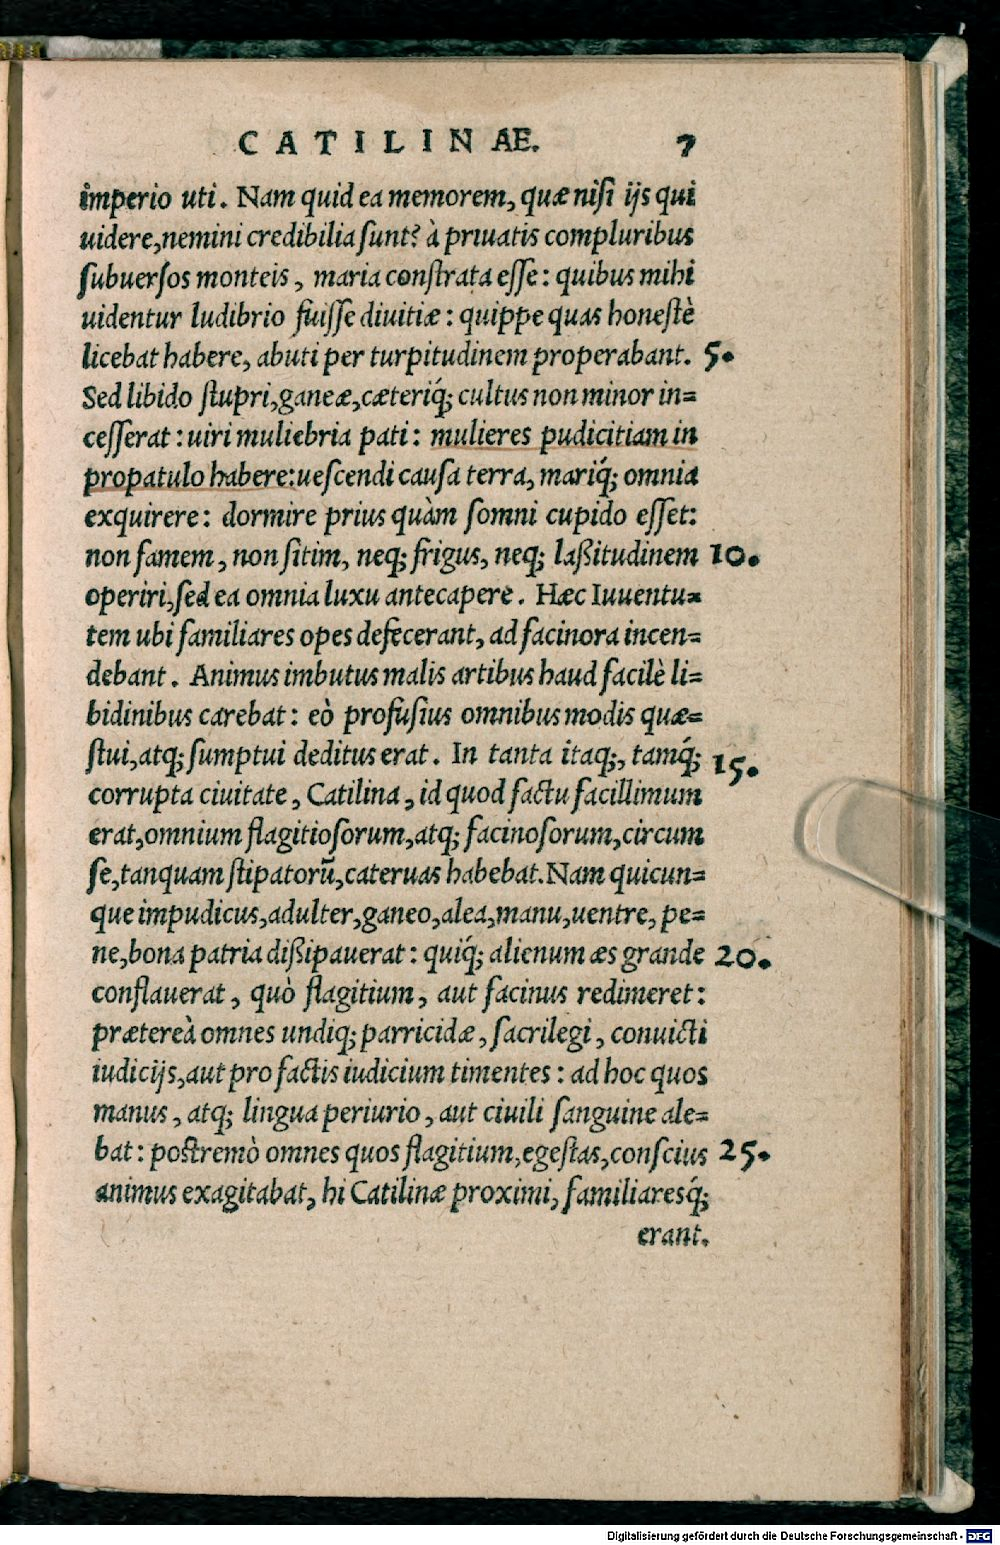 CATILINAE. 7
imperio uti. Nam quid ea memorem, quæ nisi ijs qui
uidere, nemini credibilia sunt? à priuatis compluribus
subuersos monteis, maria constrata esse: quibus mihi
uidentur ludibrio fuisse diuitiæ: quippe quas honestè
licebat habere, abuti per turpitudinem properabant. 5.
Sed libido stupri, ganeæ, cæteriq́; cultus non minor in=
cesserat: uiri muliebria pati: mulieres pudicitiam in
propatulo habere: uescendi causa terra, mariq́; omnia
exquirere: dormire prius quàm somni cupido esset:
non famem, non sitim, neq; frigus, neq; laßitudinem 10.
operiri, sed ea omnia luxu antecapere. Hæc Iuuentu=
tem ubi familiares opes defecerant, ad facinora incen=
debant. Animus imbutus malis artibus haud facilè li=
bidinibus carebat: eò profusius omnibus modis quæ=
stui, atq; sumptui deditus erat. In tanta itaq;, tamq́; 15.
corrupta ciuitate, Catilina, id quod factu facillimum
erat, omnium flagitiosorum, atq; facinosorum, circum
se, tanquam stipatorū, cateruas habebat. Nam quicun=
que impudicus, adulter, ganeo, alea, manu, uentre, pe=
ne, bona patria dißipauerat: quiq́; alienum æs grande 20.
conflauerat, quò flagitium, aut facinus redimeret:
prætereà omnes undiq; parricidæ, sacrilegi, conuicti
iudicijs, aut pro factis iudicium timentes: ad hoc quos
manus, atq; lingua periurio, aut ciuili sanguine ale=
bat: postremò omnes quos flagitium, egestas, conscius 25.
animus exagitabat, hi Catilinæ proximi, familiaresq́;
erant.
Digitalisierung gefördert durch die Deutsche Forschungsgemeinschaft - DFG